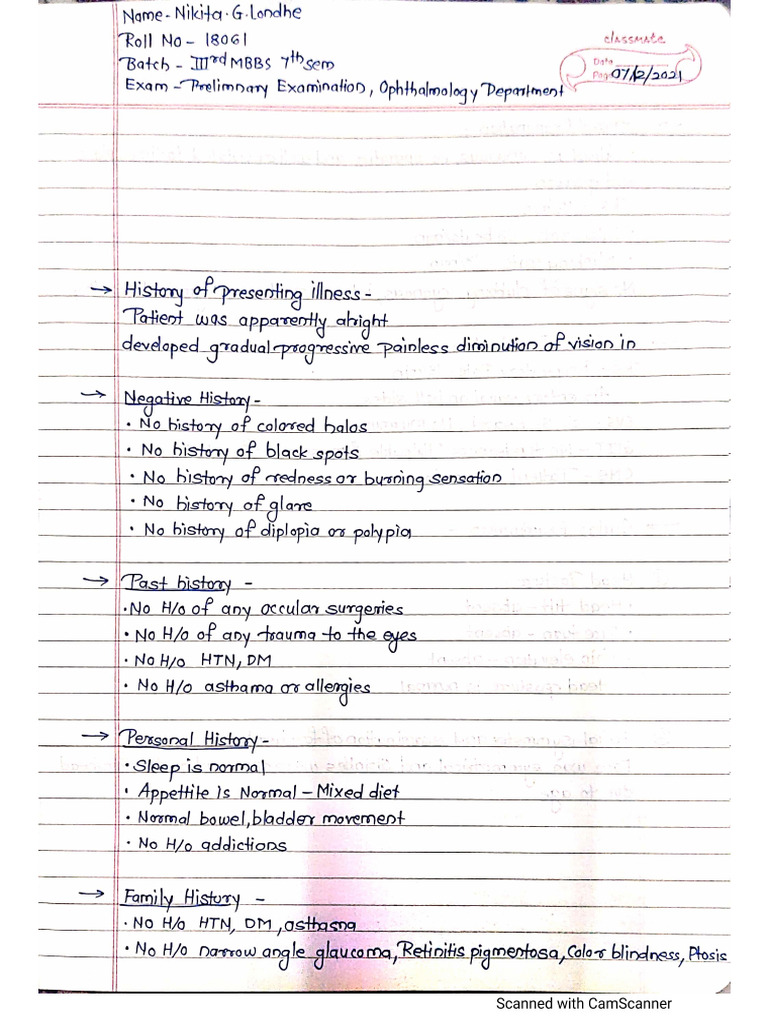 Name- Nikita. G. Londhe
Roll No - 18061
Batch - IIIrd MBBS 7th sem
Exam - Prelimnary Examination, Ophthalmology Department
classmate
Date
Page 07/12/2021
→ History of presenting illness -
Patient was apparently alright
developed gradual progressive painless diminution of vision in
→ Negative History -
• No history of colored halos
• No history of black spots
• No history of redness or burning sensation
• No history of glare
• No history of diplopia or polypia
→ Past history -
• No H/o of any occular surgeries
• No H/o of any trauma to the eyes
• No H/o HTN, DM
• No H/o asthama or allergies
→ Personal History -
• Sleep is normal
• Appettite is Normal - Mixed diet
• Normal bowel, bladder movement
• No H/o addictions
→ Family History -
• No H/o HTN, DM, asthasna
• No H/o narrow angle glaucoma, Retinitis pigmentosa, Color blindness, Ptosis
Scanned with CamScanner